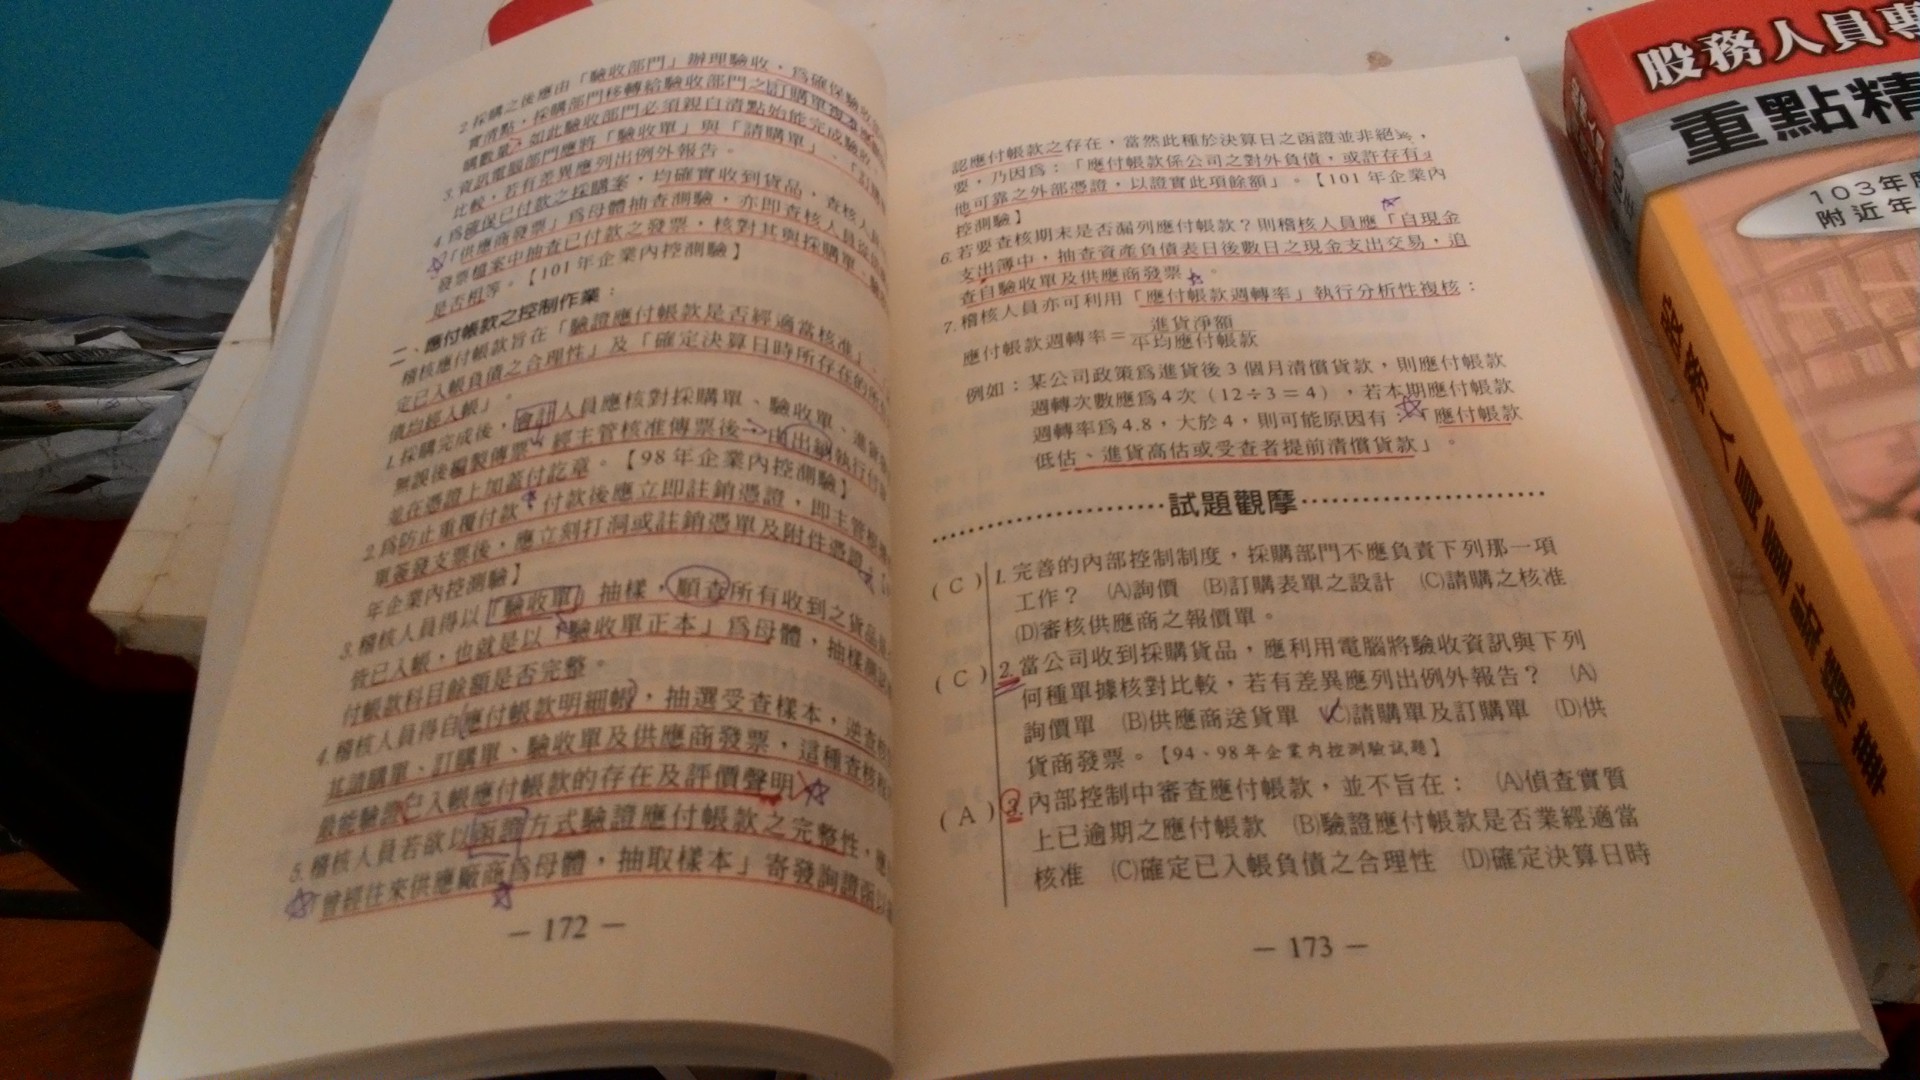 2.採購之後應由「驗收部門」辦理驗收，為確保驗收
實清點，採購部門移轉給驗收部門之訂購單
購數量，如此驗收部門必須親自清點始能完成驗收。
3.資訊電腦部門應將「驗收單」與「請購單」、「訂
比較，若有差異應列出例外報告。
4.為確保已付款之採購案，均確實收到貨品，查核人員
「供應商發票」為母體抽查測驗，亦即查核人員
發票檔案中抽查已付款之發票，核對其與採購單、
是否相等。【101年企業內控測驗】
二、應付帳款之控制作業：
稽核應付帳款旨在「驗證應付帳款是否經適當核准」、
定已入帳負債之合理性」及「確定決算日時所存在的所
債均經入帳」。
1.採購完成後，會計人員應核對採購單、驗收單、進
無誤後編製傳票，經主管核准傳票後，由出納執行付
並在憑證上加蓋付訖章。【98年企業內控測驗】
2.為防止重覆付款，付款後應立即註銷憑證，即主管
單簽發支票後，應立刻打洞或註銷憑單及附件憑證。【
年企業內控測驗】
3.稽核人員得以「驗收單」抽樣，順查所有收到之貨品
皆已入帳，也就是以「驗收單正本」為母體，抽樣
付帳款科目餘額是否完整。
4.稽核人員得自應付帳款明細帳，抽選受查樣本，逆查
其請購單、訂購單、驗收單及供應商發票，這種查核程
最能驗證已入帳應付帳款的存在及評價聲明。
5.稽核人員若欲以函證方式驗證應付帳款之完整性，應
「曾經往來供應廠商為母體，抽取樣本」寄發詢證函以
— 172 —
認應付帳款之存在，當然此種於決算日之函證並非絕
要，乃因為：「應付帳款係公司之對外負債，或許存有
他可靠之外部憑證，以證實此項餘額」。【101年企業內
控測驗】
6.若要查核期末是否漏列應付帳款？則稽核人員應「自現金
支出簿中，抽查資產負債表日後數日之現金支出交易，追
查自驗收單及供應商發票」。
7.稽核人員亦可利用「應付帳款週轉率」執行分析性複核：
應付帳款週轉率＝進貨淨額
平均應付帳款
例如：某公司政策為進貨後3個月清償貨款，則應付帳款
週轉次數應為4次（12÷3＝4），若本期應付帳款
週轉率為4.8，大於4，則可能原因有：「應付帳款
低估、進貨高估或受查者提前清償貨款」。
試題觀摩
(C) 1.完善的內部控制制度，採購部門不應負責下列那一項
工作？ (A)詢價 (B)訂購表單之設計 (C)請購之核准
(D)審核供應商之報價單。
(C) 2.當公司收到採購貨品，應利用電腦將驗收資訊與下列
何種單據核對比較，若有差異應列出例外報告？ (A)
詢價單 (B)供應商送貨單 (C)請購單及訂購單 (D)供
貨商發票。【94、98年企業內控測驗試題】
(A) 3.內部控制中審查應付帳款，並不旨在： (A)偵查實質
上已逾期之應付帳款 (B)驗證應付帳款是否業經適當
核准 (C)確定已入帳負債之合理性 (D)確定決算日時
— 173 —
股務人員專
重點精
103年度
附近年